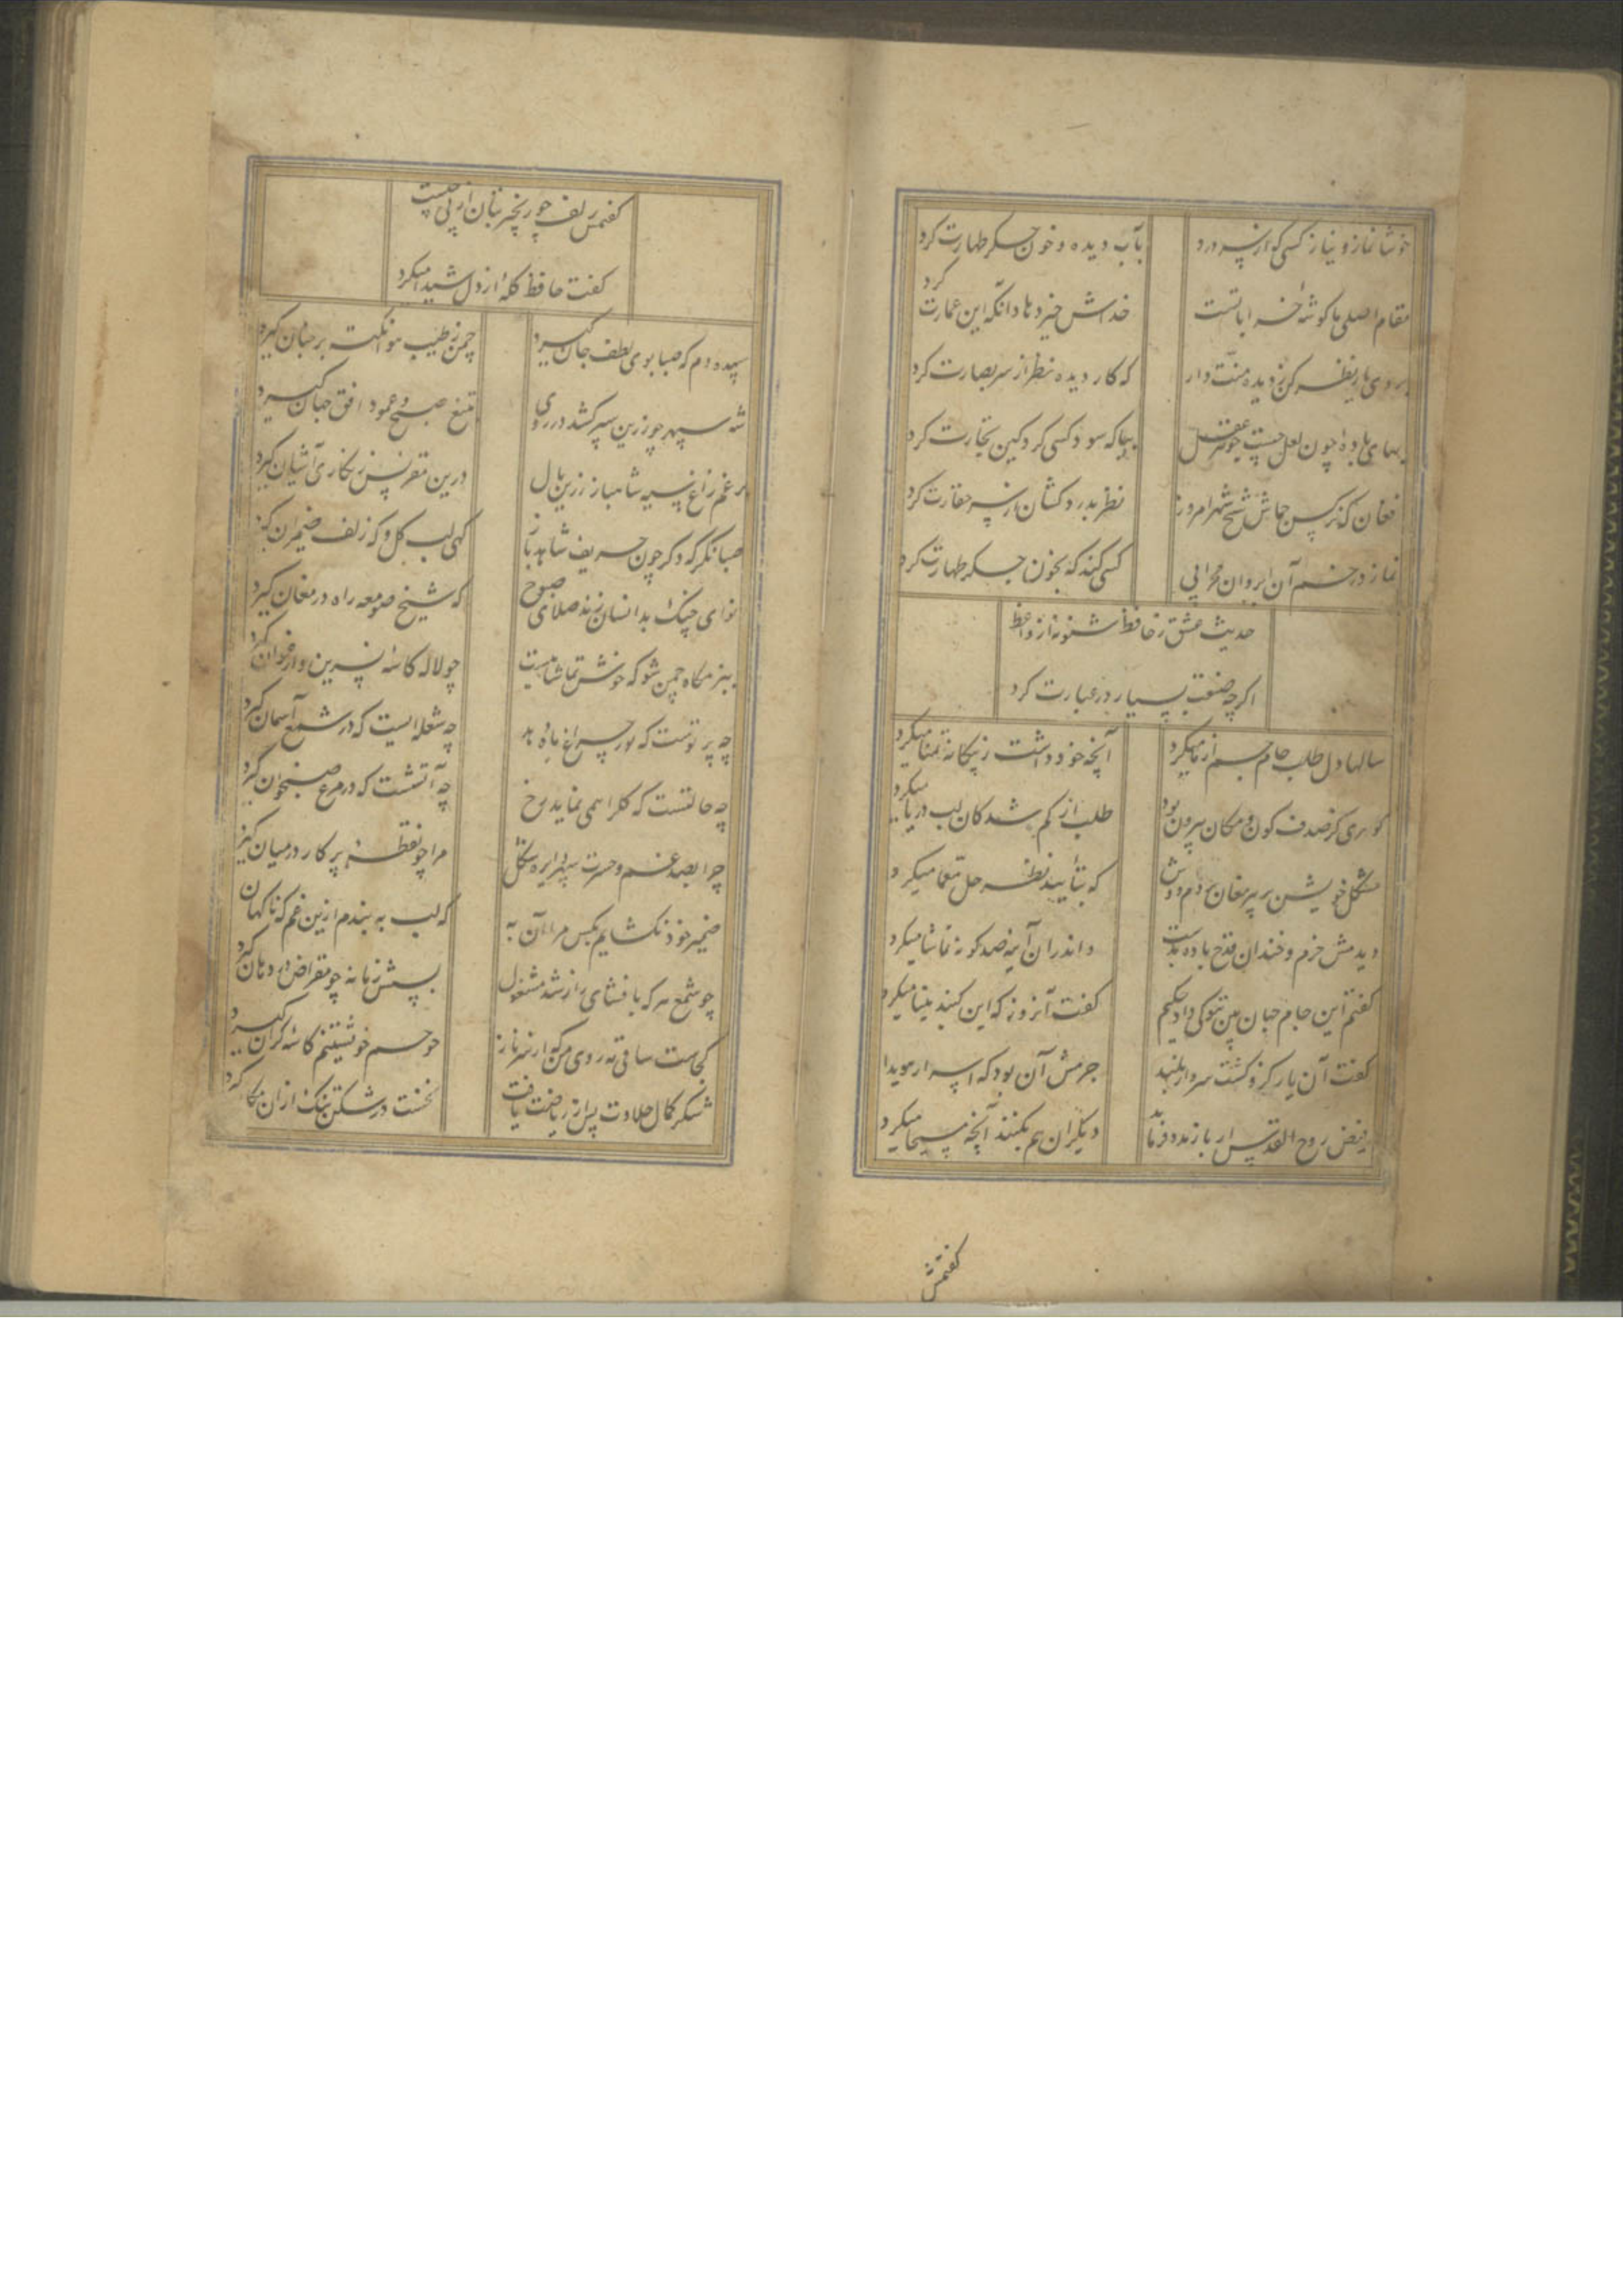 خوشا نماز و نیاز کسی که از سر درد بآب دیده و خون جگر طهارت کرد
مقام اصلی ما کوشهٔ خراباتست خداش خیر دهاد انکه این عمارت کرد
بروی یار نظر کن ز دیده منت دار که کار دیده نظر از سر بصارت کرد
بهای بادهٔ چون لعل چیست جوهر عقل بیا که سود کسی کرد کین تجارت کرد
فغان که نرکس جماش شیخ شهر امروز نظر بدردکشان از سر حقارت کرد
نماز در خم آن ابروان محرابی کسی کند که بخون جکر طهارت کرد
حدیث عشق ز حافظ شنو نه از واعظ
اکرچه صنعت بسیار در عبارت کرد
سالها دل طلب جام جم از ما میکرد آنچه خود داشت ز بیکانه تمنا میکرد
کوهری کز صدف کون و مکان بیرون بود طلب از کم شدکان لب دریا میکرد
مشکل خویش بر پیر مغان بردم دوش که بتأیید نظر حل معما میکرد
دیدمش خرم و خندان قدح باده بدست واندران آینه صد کونه تماشا میکرد
کفتم این جام جهان بین بتو کی داد حکیم کفت آنروز که این کنبد مینا میکرد
کفت آن یار کزو کشت سر دار بلند جرمش آن بود که اسرار هویدا
فیض روح القدس ار باز مدد فرماید دیکران هم بکنند آنچه مسیحا میکرد
کفتمش
کفتمش زلف چو زنجیر بتان از پی چیست
کفت حافظ کلهٔ از دل شیدا میکرد
سپیده دم که صبا بوی لطف جان کیرد چمن ز طیب هوا نکته بر جنان کیرد
شه سپهر چو زرین سپر کشد در روی بتیغ صبح و عمود افق جهان کیرد
برغم زاغ سیه شاهباز زرین بال درین مقرنس زنکاری آشیان کیرد
صبا نکر که دکر چون حریف شاهدباز کهی لب کل و که زلف ضیمران کیرد
نوای چنک بدانسان زند صلای صبوح که شیخ صومعه راه در مغان کیرد
ببزمکاه چمن شو که خوش تماشاییست چو لاله کاسهٔ نسرین و ارغوان کیرد
چه پرتوست که نور چراغ ماه دهد چه شعله ایست که در شمع آسمان کیرد
چه حالتست که کل را همی نماید رخ چه آتشست که در مرغ صبحخوان کیرد
چرا بصد غم و حسرت سپهر دایره شکل مرا چو نقطهٔ پرکار در میان کیرد
ضمیر خود نکشایم بکس مرا آن به که لب به بندم ازین غم که ناکهان
چو شمع هر که بافشای راز شد مشغول بسش زمانه چو مقراض در دهان کیرد
کجاست ساقی مه روی من که از سر ناز چو چشم خویشتنم کاسهٔ کران کیرد
شکر کمال حلاوت پس از ریاضت یافت نخست در شکن تنک از ان مکان کیرد